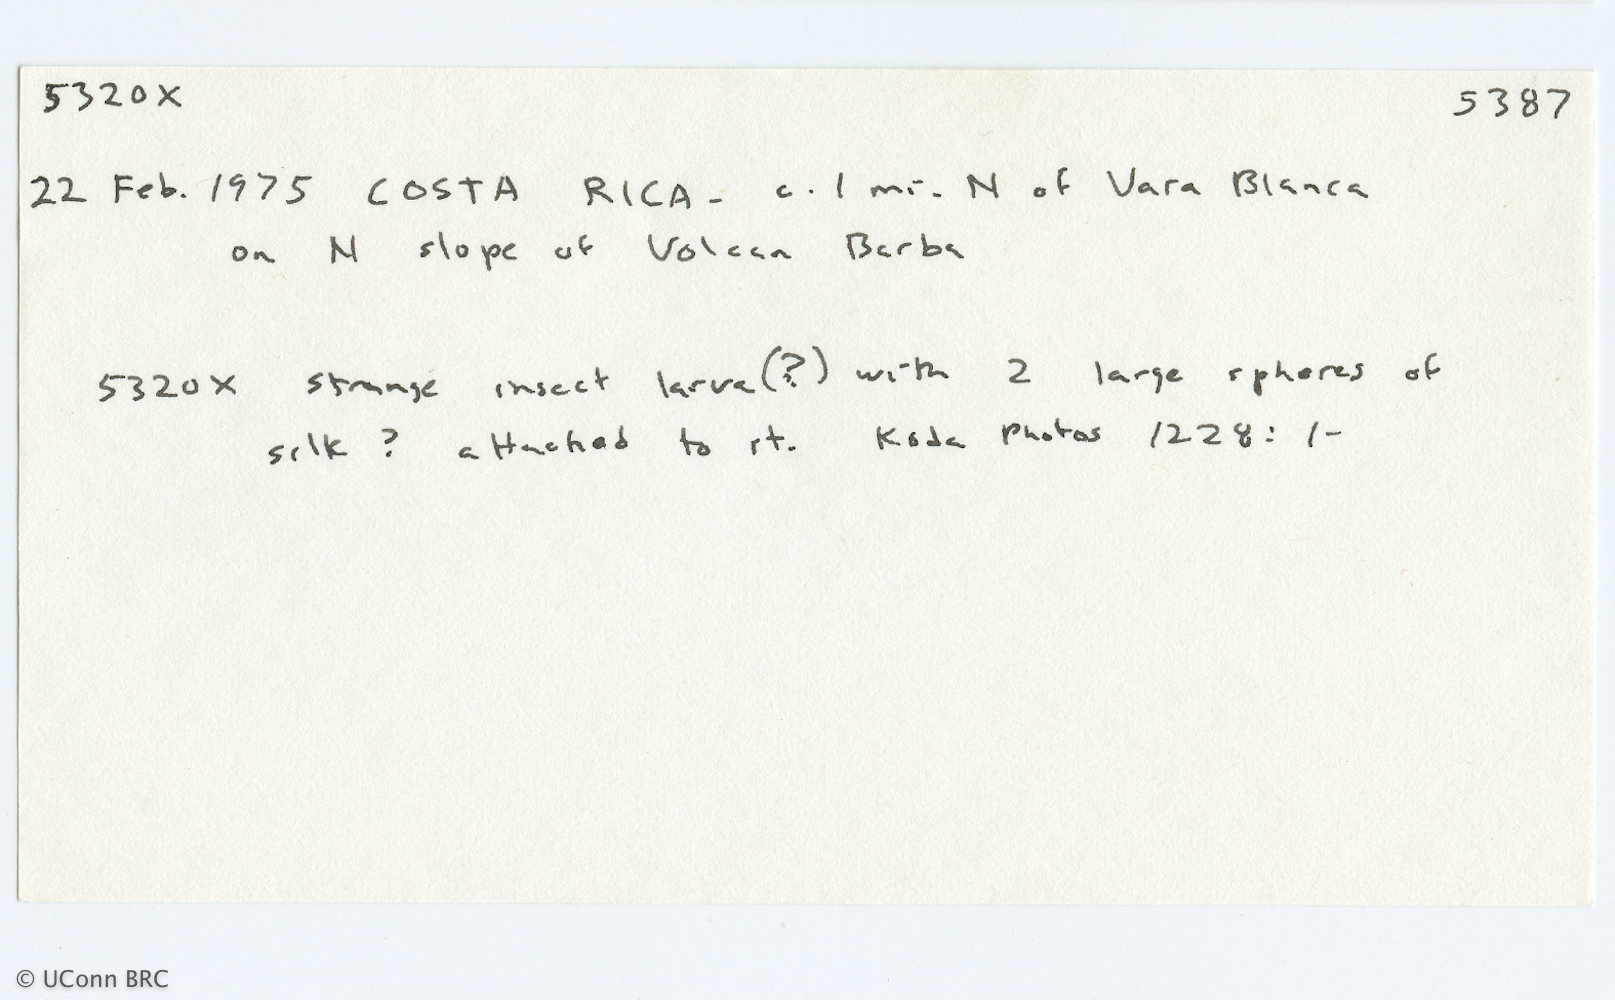 5320X 5387
22 Feb. 1975 COSTA RICA - c. 1 mi. N of Vara Blanca
on N slope of Volcan Barba
5320X strange insect larva(?) with 2 large spheres of
silk? attached to it. Koda Photos 1228: 1-
© UConn BRC